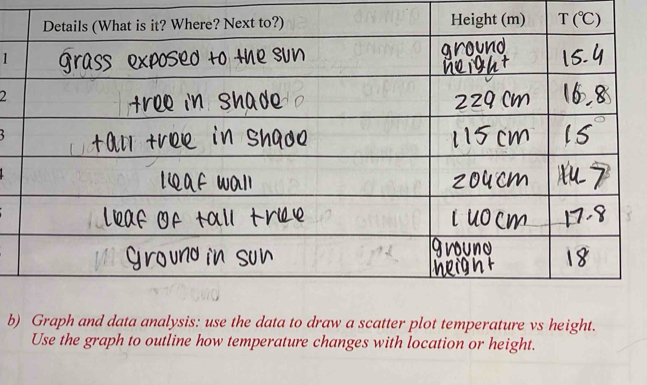 Details (What is it? Where? Next to?) Height (m) T (°C)
1 grass exposed to the sun ground height 15.4
2 tree in shade 229 cm 16.8
3 tall tree in shade 115 cm 15
leaf wall 204cm 7
leaf of tall tree 140cm 17.8
ground in sun ground height 18
b) Graph and data analysis: use the data to draw a scatter plot temperature vs height.
Use the graph to outline how temperature changes with location or height.